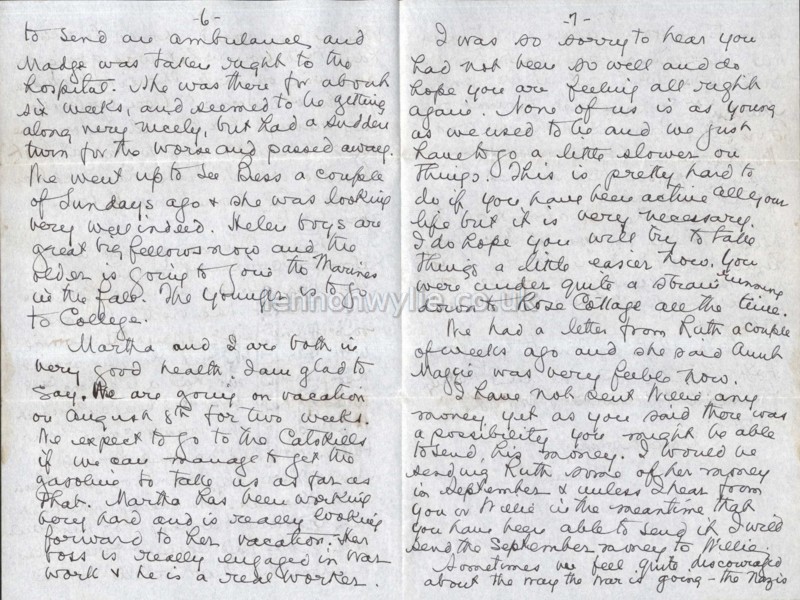 -6-
to send an ambulance, and
Madge was taken right to the
hospital. She was there for about
six weeks, and seemed to be getting
along very nicely, but had a sudden
turn for the worse and passed away.
We went up to see Bess a couple
of Sundays ago & she was looking
very well indeed. Helen boys are
great big fellows now and the
older is going to join the Marines
in the Fall. The younger is to go
to College.
Martha and I are both in
very good health I am glad to
say. We are going on vacation
on August 8th for two weeks.
We expect to go to the Catskills
if we can manage to get the
gasoline to take us as far as
that. Martha has been working
very hard and is really looking
forward to her vacation. Her
boss is really engaged in war
work & he is a real worker.
-7-
I was so sorry to hear you
had not been so well and do
hope you are feeling all right
again. None of us is as young
as we used to be and we just
have to go a little slower on
things. This is pretty hard to
do if you have been active all your
life but it is very necessary.
I do hope you will try to take
things a little easier now. You
were under quite a strain running
down to Rose Cottage all the time.
We had a letter from Ruth a couple
of weeks ago and she said Aunt
Maggie was very feeble now.
I have not sent Willie any
money yet as you said there was
a possibility you might be able
to send his money. I would be
sending Ruth some of her money
in September & unless I hear from
you or Willie in the meantime that
you have been able to send it I will
send the September money to Willie.
Sometimes we feel quite discouraged
about the way the war is going - the Nazis
lennonwylie.co.uk